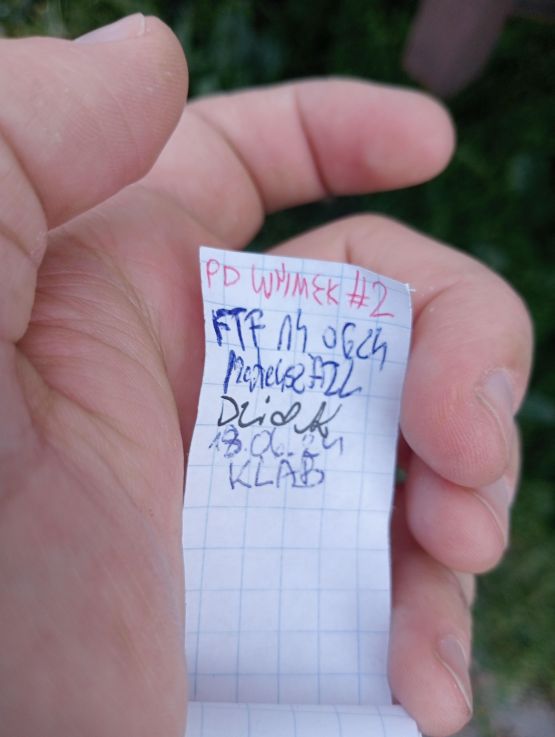 PD WYIMEK #2
FTF 14 06 24
MateuszAZZ
Dziołk
18.06.24
KLAB